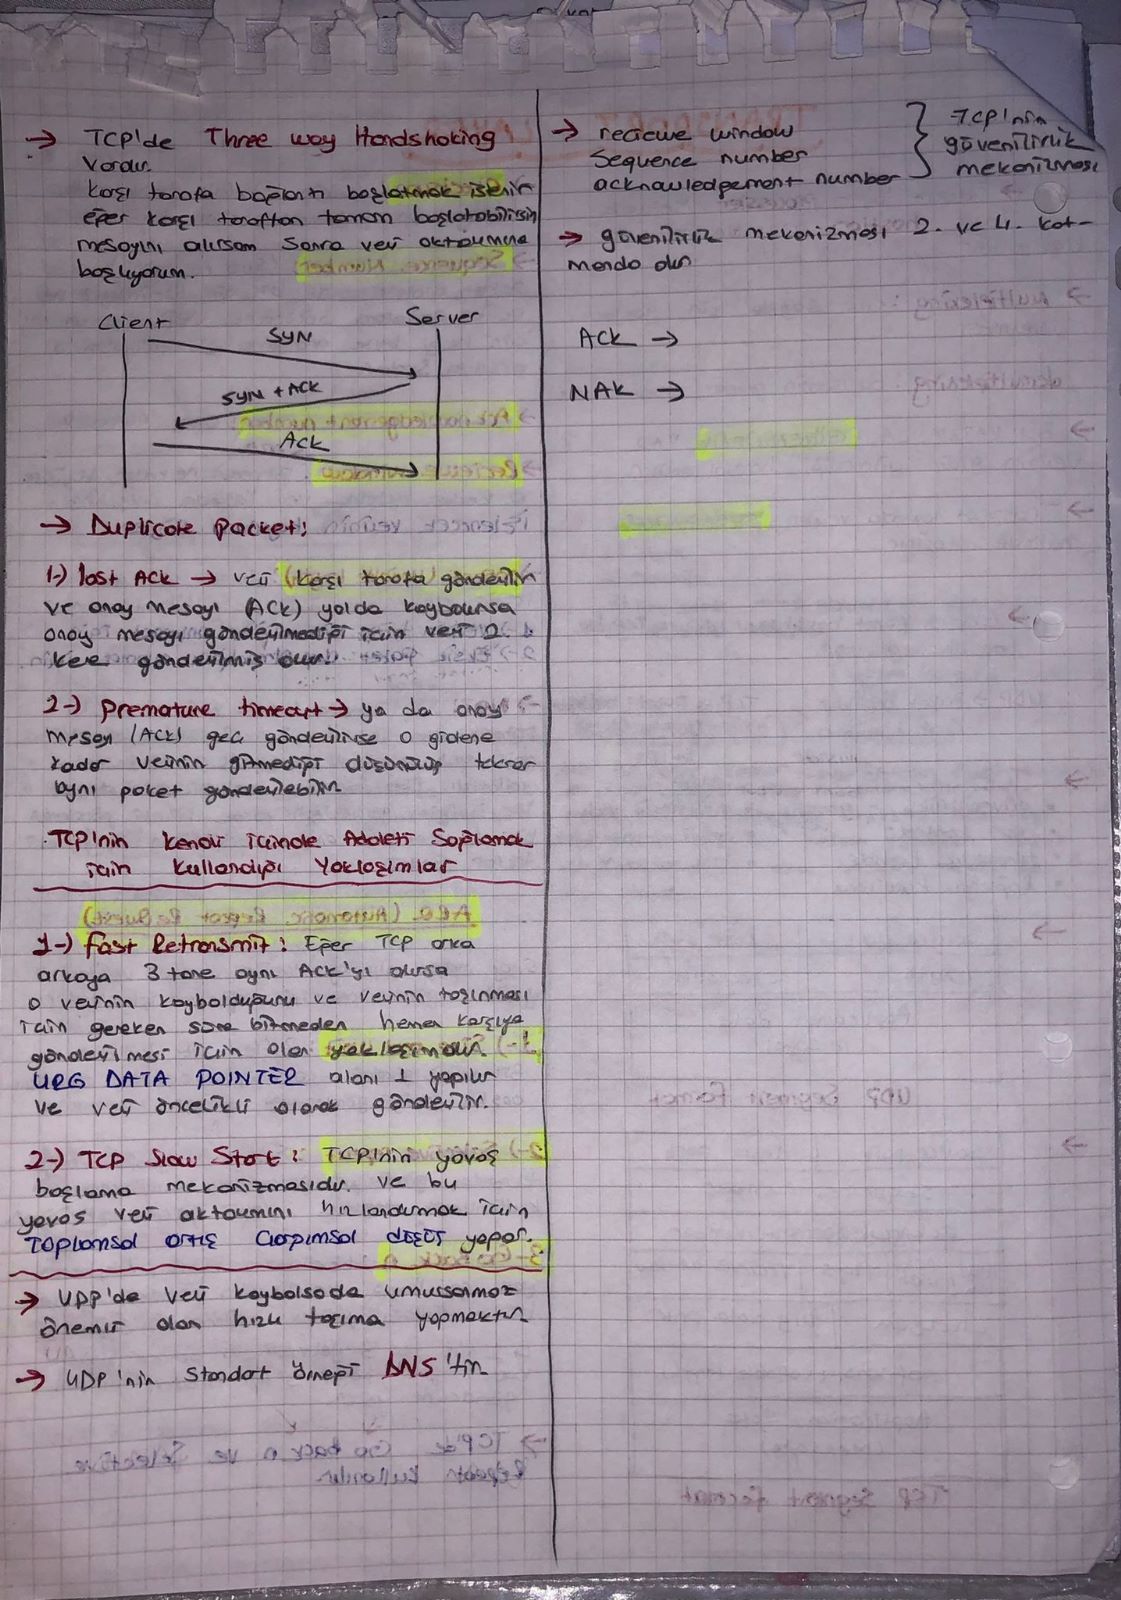 → TCP'de Three way Handshaking
vardır.
karşı tarafa bağlantı başlatmak istenir
eğer karşı taraftan tamam başlatabilirsin
mesajını alırsam sonra veri aktarımına
başlıyorum.
Client
Server
SYN
SYN + ACK
Ack
→ Duplicate Packet:
1-) lost Ack → veri karşı tarafa gönderilir
ve onay mesajı (ACk) yolda kaybolursa
onay mesajı gönderilmediği için veri 2.
kere gönderilmiş olur.
2-) Premature timeout → ya da onay
mesajı (ACk) geç gönderilirse o gidene
kadar verinin gitmediği düşünülüp tekrar
aynı paket gönderilebilir
TCP'nin kendi içinde Adaleti Sağlamak
için kullandığı Yaklaşımlar
1-) Fast Retransmit: Eğer TCP arka
arkaya 3 tane aynı Ack'yı alırsa
o verinin kaybolduğunu ve verinin taşınması
için gereken süre bitmeden hemen karşıya
gönderilmesi için olan yaklaşımdır.
URG DATA POINTER alanı 1 yapılır
ve veri öncelikli olarak gönderilir.
2-) TCP Slow Start: TCP'nin yavaş
başlama mekanizmasıdır. ve bu
yavaş veri aktarımını hızlandırmak için
Toplamsal artış Çarpımsal düşüş yapar.
→ UDP'de veri kaybolsada umursanmaz
önemli olan hızlı taşıma yapmaktır
→ UDP'nin standart örneği DNS'tir.
→ recieve window
Sequence number
acknowledgement number
TCP'nin
güvenilirlik
mekanizması
→ güvenilirlik mekanizması 2. ve 4. kat-
manda olur
Ack →
NAk →